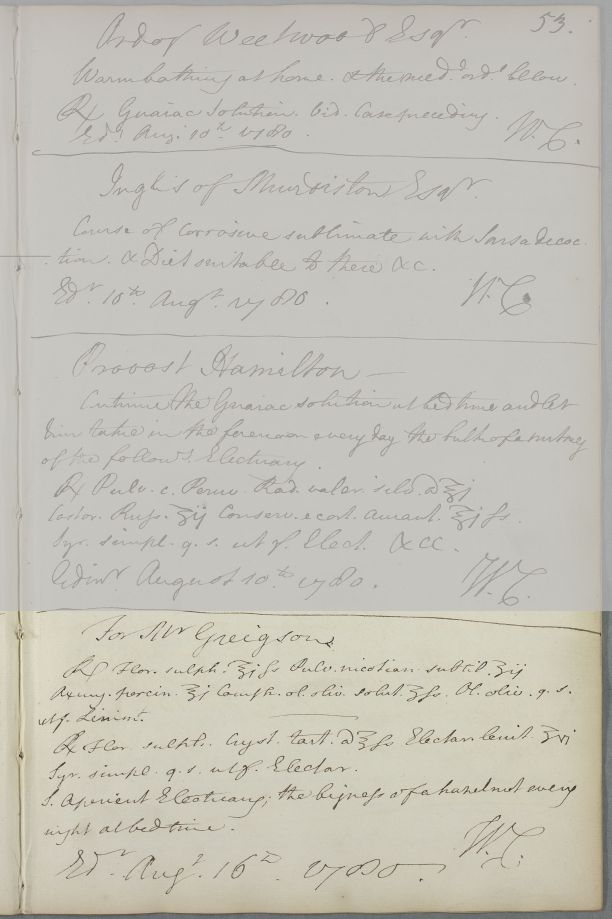 53.
Ard of Westwood Esqr.
Warm bathing at home. & the med.s ord.d below.
Rx Guaiac Solution. bid. Case preceding.
Edr. Aug. 10th 1780. W.C.
Inglis of Murdiston Esqr.
Course of corrosive sublimate with Sarsa decoc
tion. & Diet suitable to these &c.
Edr. 10th Augt. 1780. W.C.
Provost Hamilton —
Continue the Guaiac solution at bedtime and let
him take in the forenoon every day the bulk of a nutmeg
of the follows. Electuary.
Rx Pulv. c. Peruv. Rad. valer. silv. a ʒj
Castor. Russ. ʒij Conserv. e cort. aurant. ℥j fs.
Syr. simpl. q. s. ut f. Elect. &cc.
Edinr. August 10th 1780. W.C.
For Mr Greigson
Rx Flor. sulph. ℥j fs Pulv. nicotian. subtil. ʒij
Axung. porcin. ℥j Camph. ol. oliv. solut. ℥fs. Ol. oliv. q. s.
ut f. Linimt.
Rx Flor. sulph. Cryst. tart. a ℥fs Electar. lenit. ℥vj
Syr. simpl. q. s. ut f. Electar.
S. Aperient Electuary; the bigness of a hazelnut every
night at bedtime.
Edr. Augt. 16th 1780. W.C.